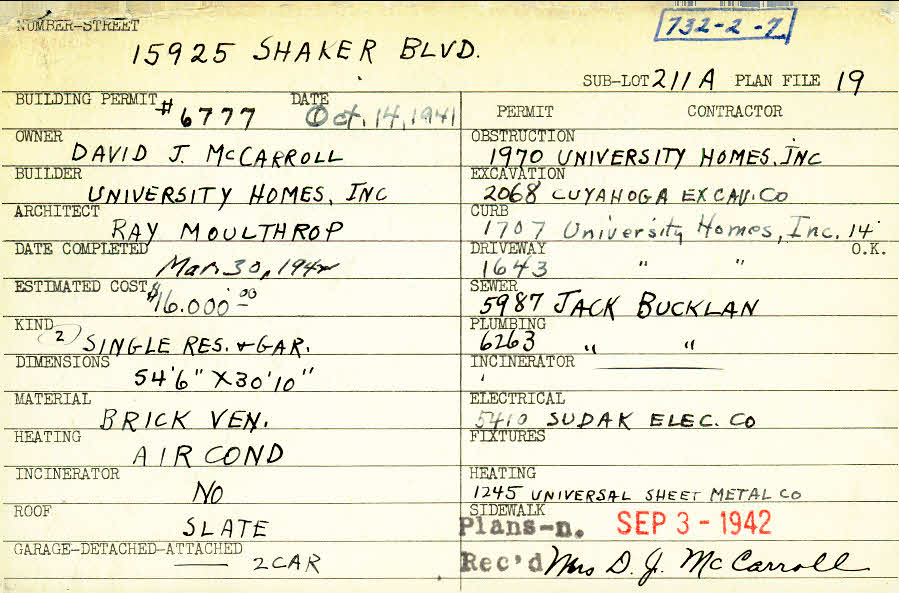 NUMBER-STREET
732-2-7
15925 SHAKER BLVD.
SUB-LOT 211A PLAN FILE 19
BUILDING PERMIT # 6777 DATE Oct. 14, 1941
OWNER
DAVID J. McCARROLL
BUILDER
UNIVERSITY HOMES, INC
ARCHITECT
RAY MOULTHROP
DATE COMPLETED
Mar. 30, 1942
ESTIMATED COST $16.000.00
KIND
(2) SINGLE RES. & GAR.
DIMENSIONS
54'6" X 30'10"
MATERIAL
BRICK VEN.
HEATING
AIR COND
INCINERATOR
NO
ROOF
SLATE
GARAGE-DETACHED-ATTACHED
2 CAR
PERMIT CONTRACTOR
OBSTRUCTION
1970 UNIVERSITY HOMES, INC
EXCAVATION
2068 CUYAHOGA EXCAV. CO
CURB
1707 University Homes, Inc. 14'
DRIVEWAY O.K.
1643 " "
SEWER
5987 JACK BUCKLAN
PLUMBING
6263 " "
INCINERATOR
ELECTRICAL
5410 SUDAK ELEC. CO
FIXTURES
HEATING
1245 UNIVERSAL SHEET METAL CO
SIDEWALK
Plans-n. SEP 3 - 1942
Rec'd Mrs D. J. McCarroll